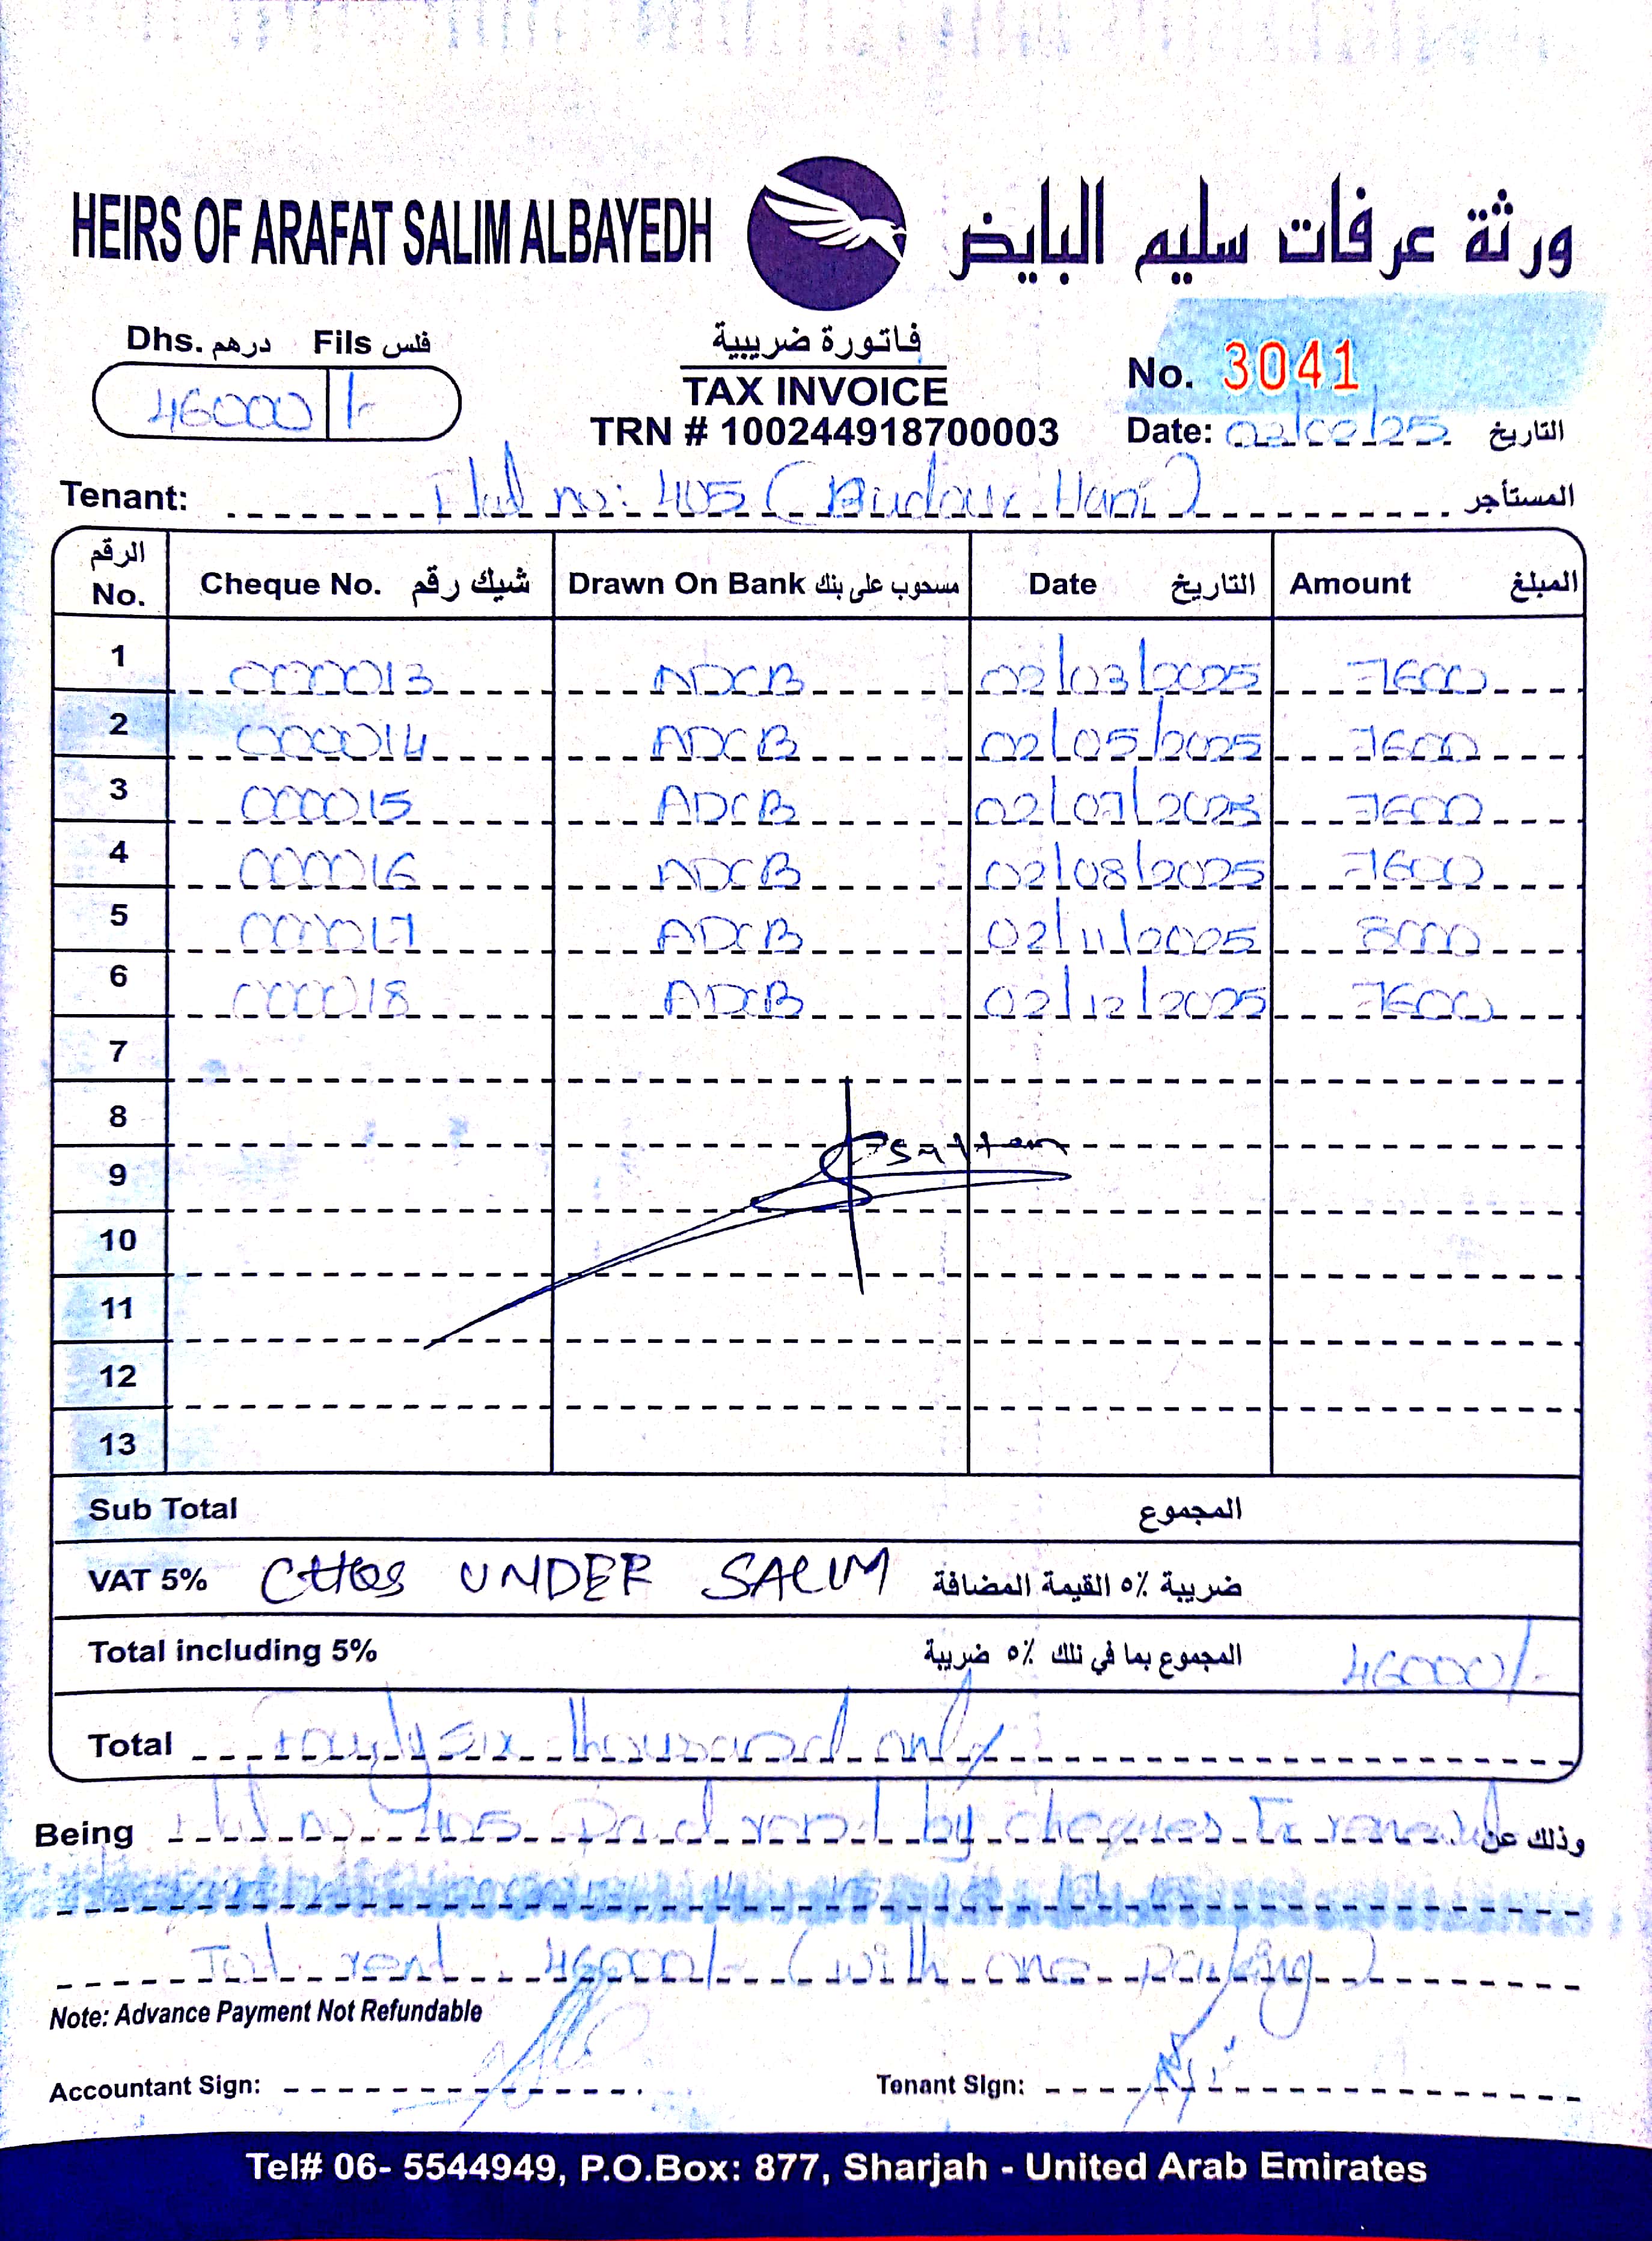 HEIRS OF ARAFAT SALIM ALBAYEDH ورثة عرفات سليم البايض
Dhs. درهم Fils فلس
46000 /-
فاتورة ضريبية
TAX INVOICE
TRN # 100244918700003
No. 3041
Date: 02/02/25 التاريخ
Tenant: Flat no: 405 (Budour Hani) المستأجر
الرقم No. Cheque No. شيك رقم Drawn On Bank مسحوب على بنك Date التاريخ Amount المبلغ
1 000013 ADCB 02/03/2025 7600
2 000014 ADCB 02/05/2025 7600
3 000015 ADCB 02/07/2025 7600
4 000016 ADCB 02/08/2025 7600
5 000017 ADCB 02/11/2025 8000
6 000018 ADCB 02/12/2025 7600
7
8
9
10
11
12
13
Sub Total المجموع
VAT 5% CHQS UNDER SALIM ضريبة ٥٪ القيمة المضافة
Total including 5% المجموع بما في ذلك ٥٪ ضريبة 46000/-
Total Fourty six thousand only
Being Flat no 405 Paid rent by cheques وذلك عن
Total rent : 46000/- (with one parking)
Note: Advance Payment Not Refundable
Accountant Sign: Tenant Sign:
Tel# 06- 5544949, P.O.Box: 877, Sharjah - United Arab Emirates